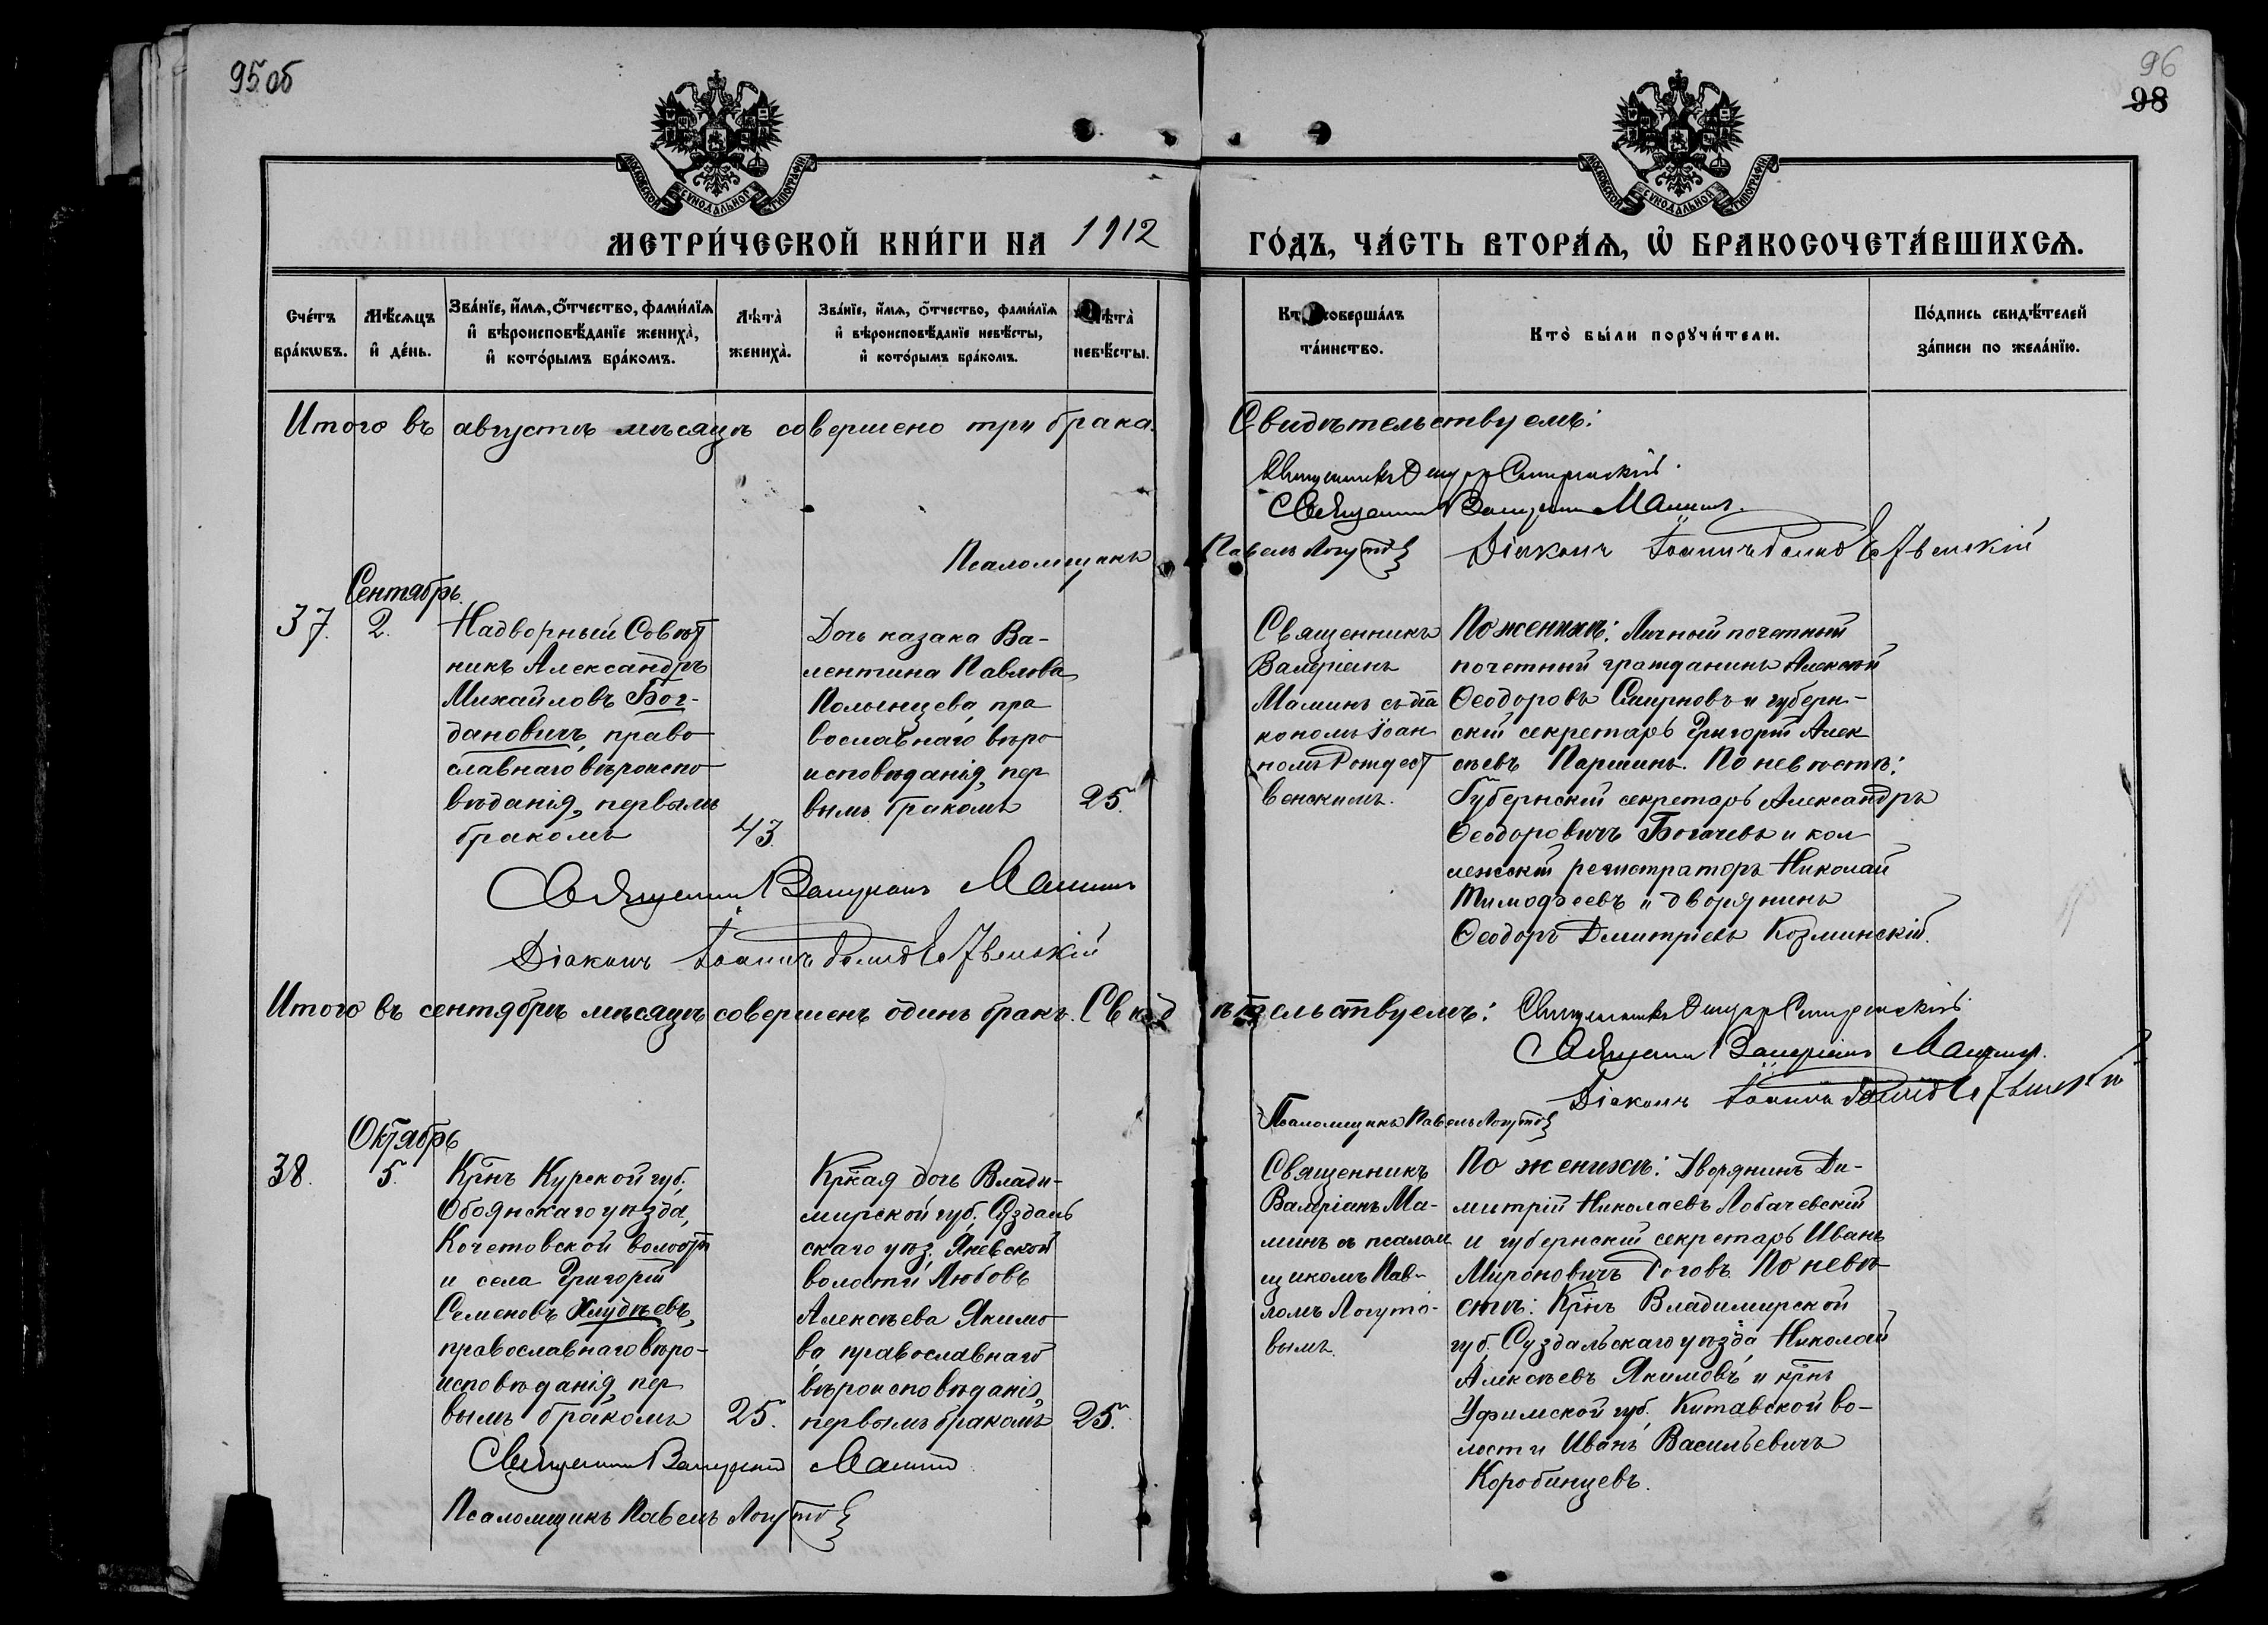 95 об
96
98
МОСКОВСКОЙ СѴНОДАЛЬНОЙ ТИПОГРАФІИ
МОСКОВСКОЙ СѴНОДАЛЬНОЙ ТИПОГРАФІИ
МЕТРИ́ЧЕСКОЙ КНИ́ГИ НА 1912
ГО́ДЪ, ЧА́СТЬ ВТОРА́Ѧ, Ѡ҆ БРАКОСОЧЕТА́ВШИХСѦ.
Сче́тъ бра́кѡвъ.
Мѣ́сѧцъ и҆ де́нь.
Зва́нїе, и҆́мѧ, ѻ҆́тчество, фами́лїѧ
и҆ вѣроисповѣ́данїе жениха̀,
и҆ кото́рымъ бра́комъ.
Лѣ́та̀ жениха̀.
Зва́нїе, и҆́мѧ, ѻ҆́тчество, фами́лїѧ
и҆ вѣроисповѣ́данїе невѣ́сты,
и҆ кото́рымъ бра́комъ.
Лѣ́та̀ невѣ́сты.
Кто̀ соверша́лъ
та́инство.
Кто̀ бы́ли порꙋчи́тели.
По́дпись свидѣ́телей
за́писи по жела́нїю.
Итого въ августѣ мѣсяцѣ совершено три брака.
Свидѣтельствуемъ:
Священникъ
Священникъ Валеріанъ Маминъ.
Псаломщикъ Павелъ Логутов
Діаконъ Іоаннъ Рождественскій
Сентябрь.
37.
2.
Надворный Совѣт
никъ Александръ
Михайловъ Бог-
дановичъ, право
славнаго вѣроиспо
вѣданія, первымъ
бракомъ
43.
Дочь казака Ва-
лентина Павлова
Полынцева, пра
вославнаго вѣро
исповѣданія, пер
вымъ бракомъ
25.
Священникъ
Валеріанъ
Маминъ съ діа
кономъ Іоан
номъ Рождест
венскимъ.
По женихѣ: Личный почетный
почетный гражданинъ Алексѣй
Ѳеодоровъ Смирновъ и губерн-
скій секретарь Григорій Алек
сѣевъ Паршинъ. По невѣстѣ:
Губернскій секретарь Александръ
Ѳеодоровичъ Богачевъ и кол
лежскій регистраторъ Николай
Тимоѳеевъ и дворянинъ
Ѳеодоръ Дмитріевъ Козминскій.
Священникъ Валеріанъ Маминъ
Діаконъ Іоаннъ Рождественскій
Итого въ сентябрѣ мѣсяцѣ совершенъ одинъ бракъ. Свидѣтельствуемъ:
Священникъ
Священникъ Валеріанъ Маминъ.
Діаконъ Іоаннъ Рождественскій
Псаломщикъ Павелъ Логутов
Октябрь
38.
5.
Крнъ Курской губ.
Обоянскаго уѣзда,
Кочетовской волости
и села Григорій
Семеновъ Хлудѣевъ,
православнаго вѣро-
исповѣданія, пер
вымъ бракомъ
25.
Кркая дочь Влади-
мирской губ. Суздаль
скаго уѣз. Яневской
волости Любовь
Алексѣева Якимо
ва православнаго
вѣроисповѣданія,
первымъ бракомъ
25.
Священникъ
Валеріанъ Ма-
минъ съ псалом
щикомъ Пав-
ломъ Логуто-
вымъ.
По женихѣ: Дворянинъ Ди-
митрій Николаевъ Лобачевскій
и губернскій секретарь Иванъ
Мироновичъ Роговъ. По невѣ
стѣ: Крнъ Владимирской
губ. Суздальскаго уѣзда Николай
Алексѣевъ Якимовъ и крнъ
Уфимской губ. Китавской во-
лости Иванъ Васильевичъ
Коробинцевъ.
Священникъ Валеріанъ Маминъ
Псаломщикъ Павелъ Логутов